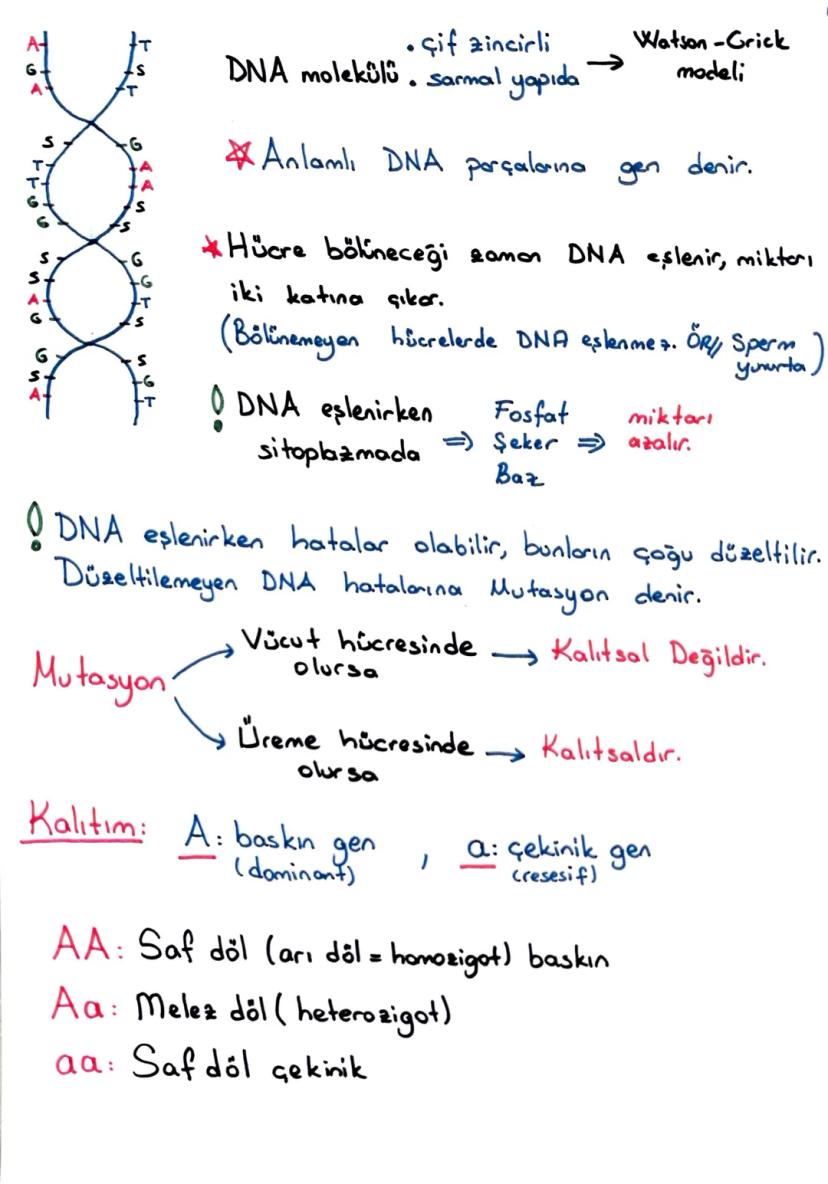 A T
G S
A T
S G
T A
T A
G S
G S
S G
S G
A T
G S
G S
S G
A T
DNA molekülü . çif zincirli
. sarmal yapıda → Watson-Crick
modeli
Anlamlı DNA parçalarına gen denir.
Hücre bölüneceği zaman DNA eşlenir, miktarı
iki katına çıkar.
(Bölünemeyen hücrelerde DNA eşlenmez. ÖR// Sperm
yumurta)
! DNA eşlenirken
sitoplazmada ⇒ Fosfat
Şeker
Baz ⇒ miktarı
azalır.
! DNA eşlenirken hatalar olabilir, bunların çoğu düzeltilir.
Düzeltilemeyen DNA hatalarına Mutasyon denir.
Mutasyon
Vücut hücresinde
olursa → Kalıtsal Değildir.
Üreme hücresinde
olursa → Kalıtsaldır.
Kalıtım: A: baskın gen
(dominant) , a: çekinik gen
(resesif)
AA: Saf döl (arı döl = homozigot) baskın
Aa: Melez döl (heterozigot)
aa: Saf döl çekinik